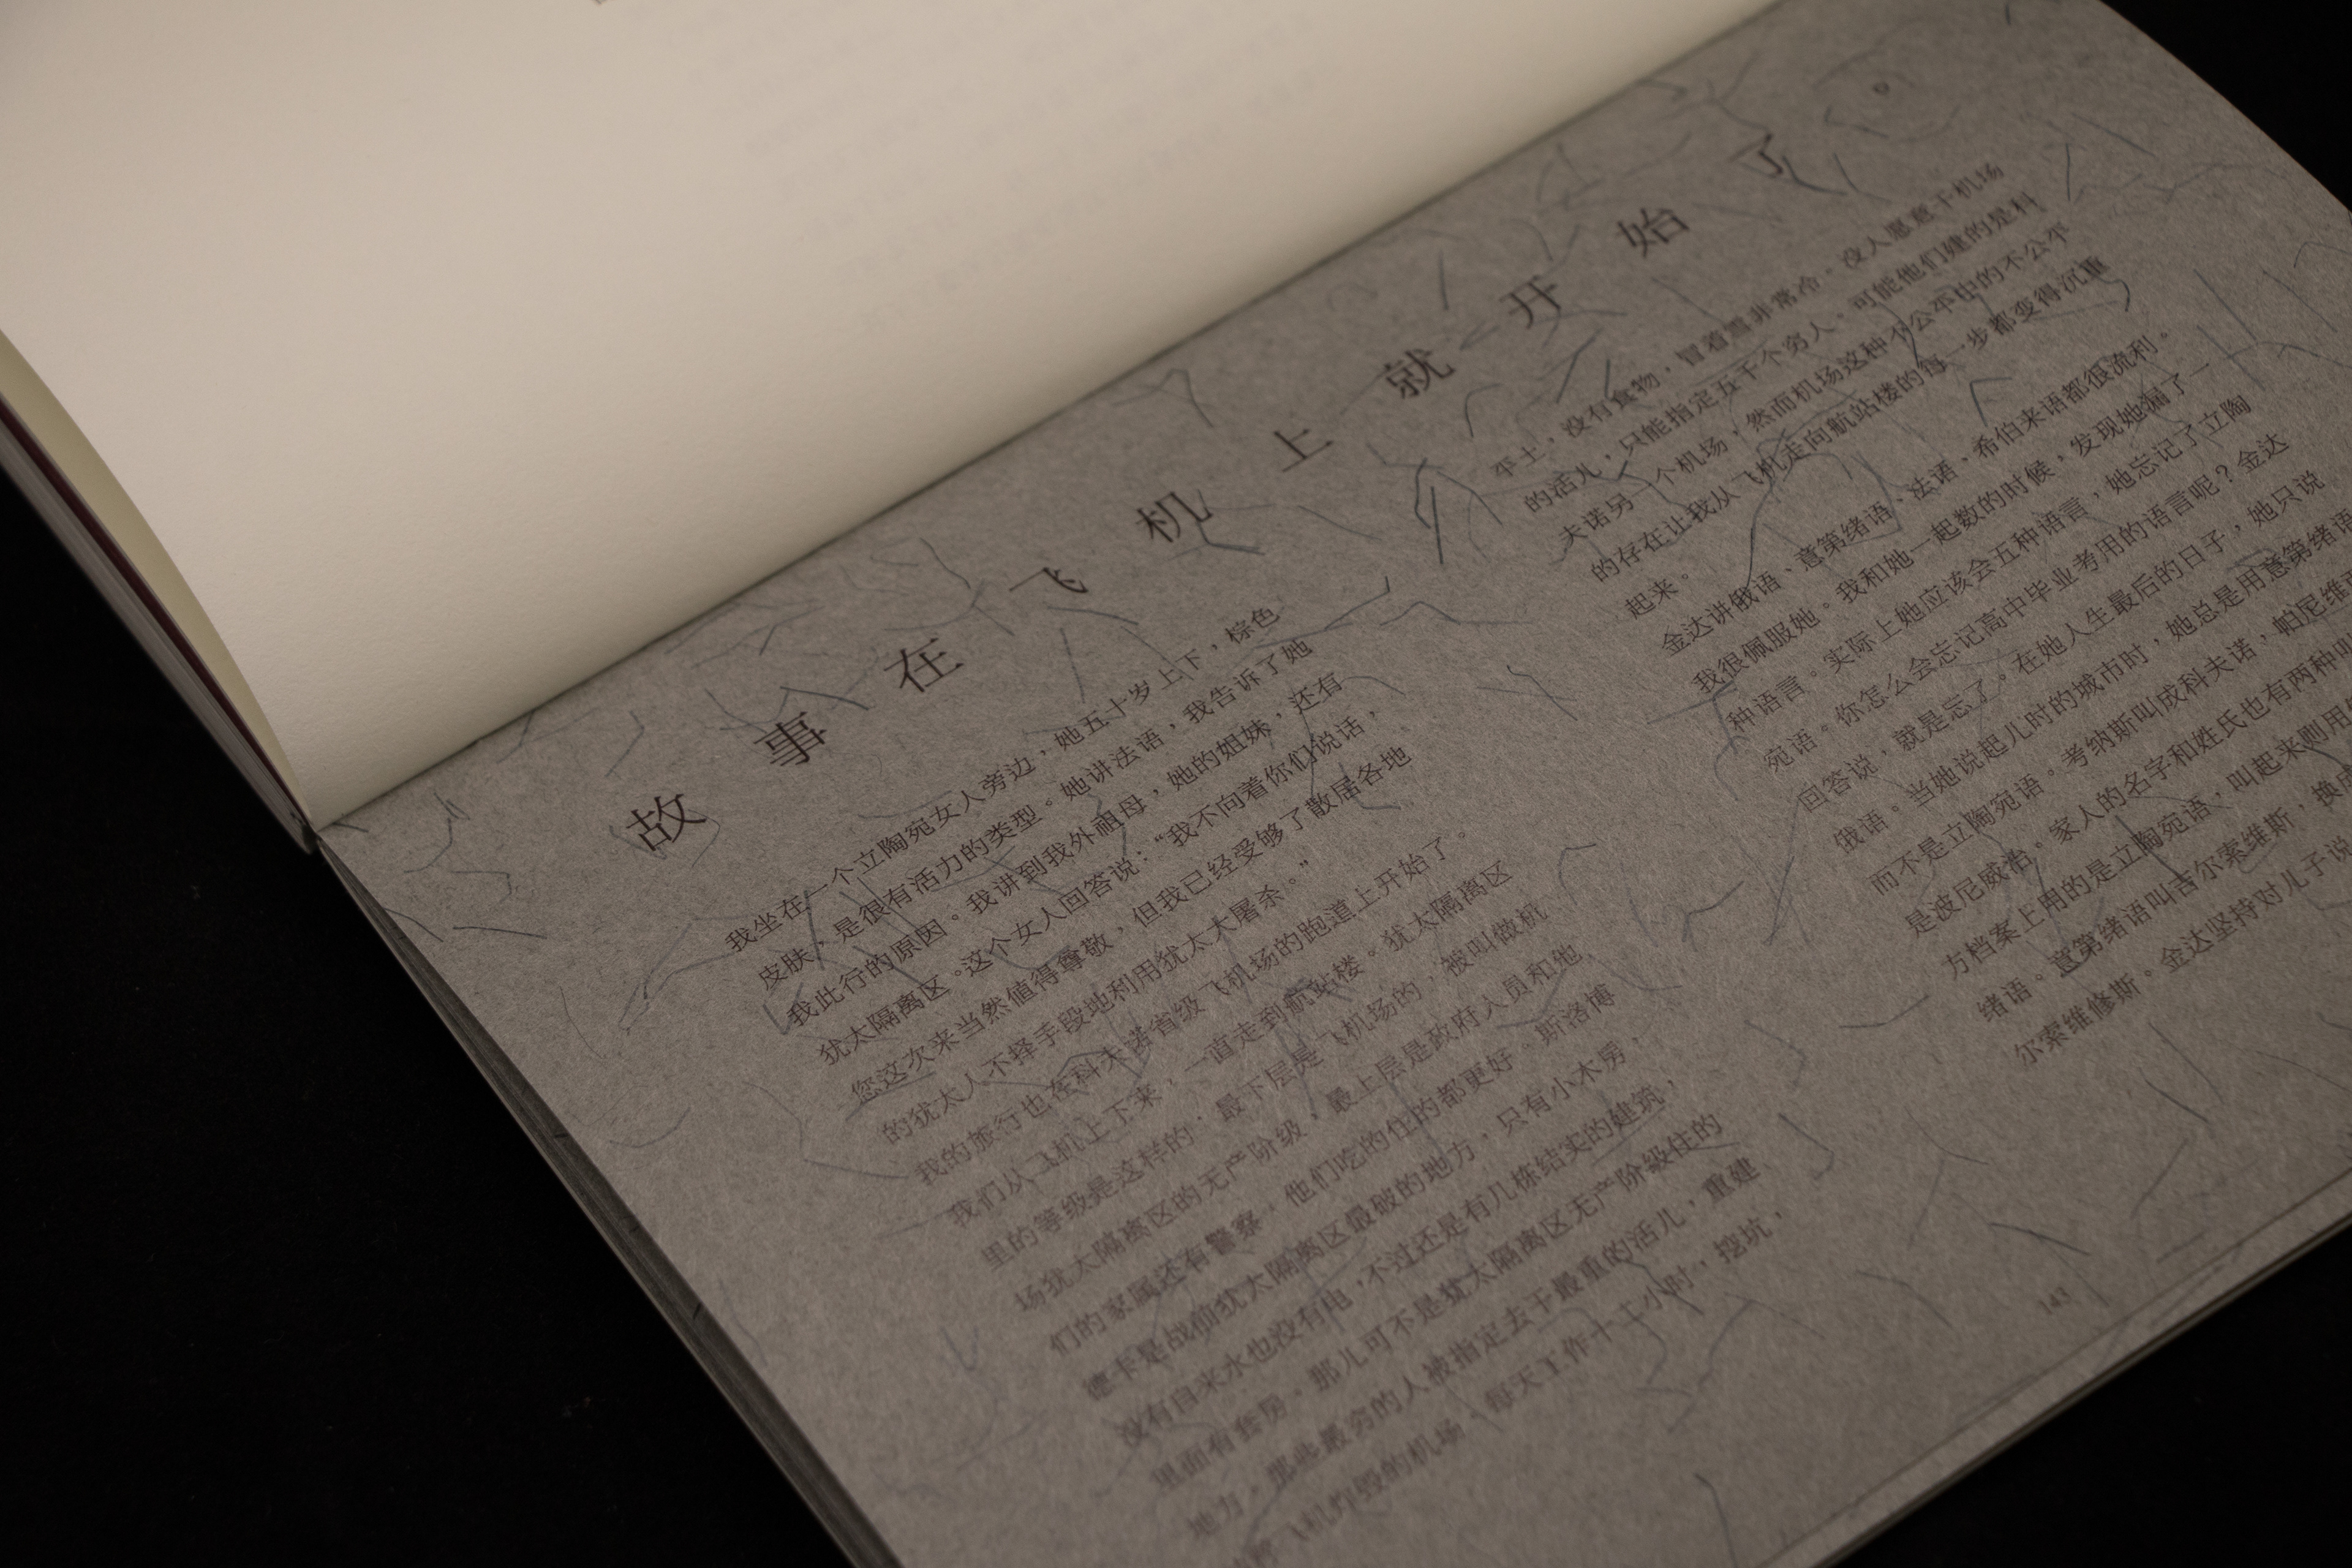 故事在飞机上就开始了。
我坐在一个立陶宛女人旁边，她五十岁上下，棕色
皮肤，是很有活力的类型。她讲法语，我告诉了她
我此行的原因。我讲到我外祖母，她的姐妹，还有
犹太隔离区。这个女人回答说：“我不向着你们说话，
您这次来当然值得尊敬，但我已经受够了散居各地
的犹太人不择手段地利用犹太大屠杀。”
我的旅行也在科夫诺省级飞机场的跑道上开始了。
我们从飞机上下来，一直走到航站楼。犹太隔离区
里的等级是这样的，最下层是飞机场的，被叫做机
场犹太隔离区的无产阶级，最上层是政府人员和他
们的家属还有警察。他们吃的住的都更好。斯洛博
德卡是战前犹太隔离区最破的地方，只有小木房，
没有自来水也没有电，不过还是有几栋结实的建筑，
里面有套房。那儿可不是犹太隔离区无产阶级住的
地方。那些最穷的人被指定去干最重的活儿，重建
飞机炸毁的机场。每天工作十二小时，挖坑，
平土，没有食物，冒着雪非常冷。没人愿意干机场
的活儿，只能指定五千个穷人。可能他们建的是科
夫诺另一个机场，然而机场这种不公平中的不公平
的存在让我从飞机走向航站楼的每一步都变得沉重
起来。
金达讲俄语、意第绪语、法语、希伯来语都很流利。
我很佩服她。我和她一起数的时候，发现她漏了一
种语言。实际上她应该会五种语言，她忘记了立陶
宛语。你怎么会忘记高中毕业考用的语言呢？金达
回答说，就是忘了。在她人生最后的日子，她只说
俄语。当她说起儿时的城市时，她总是用意第绪语
而不是立陶宛语。考纳斯叫成科夫诺，帕尼维
是波尼威治。家人的名字和姓氏也有两种叫
方档案上用的是立陶宛语，叫起来则用
绪语。意第绪语叫吉尔索维斯，换成
尔索维修斯。金达坚持对儿子说
143